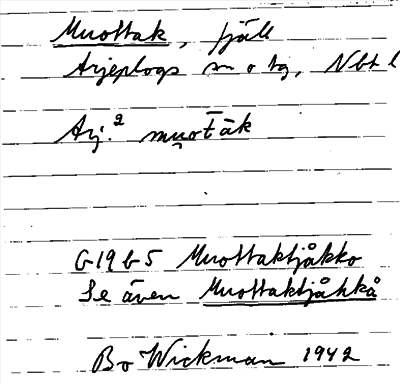 Muottak, fjäll
Arjeplogs sn o tg, Nbt l
Arj.² mu̯ot̄ak
G19b5 Muottaktjåkko
Se även Muottaktjåhkå
Bo Wickman 1942